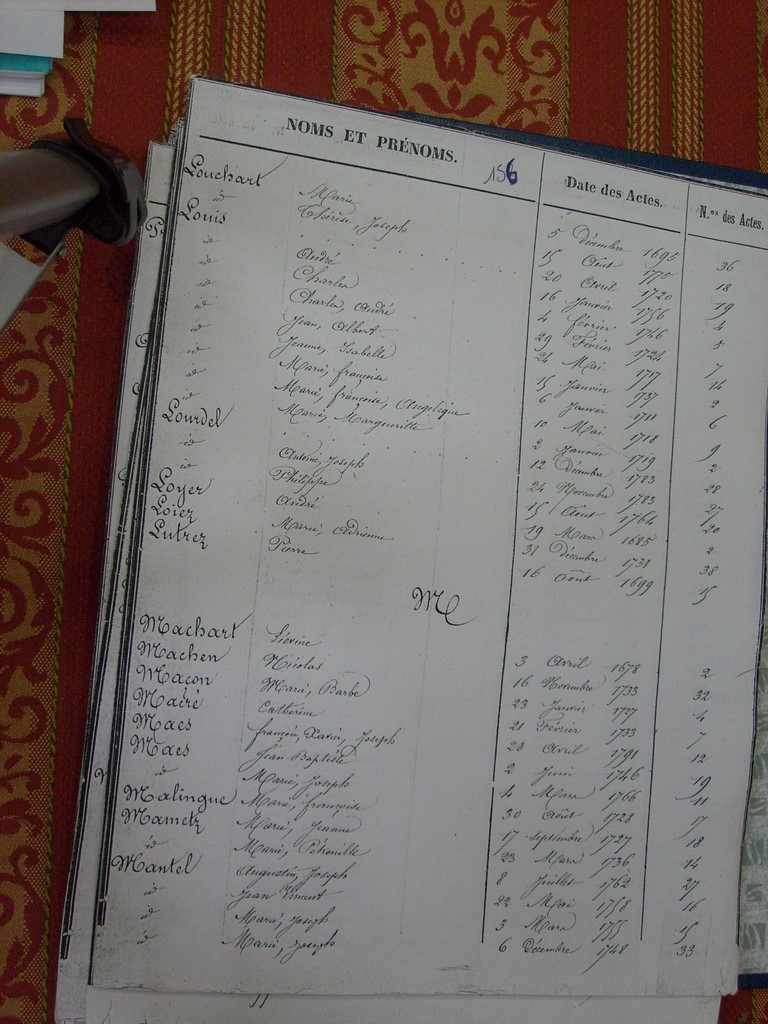 NOMS ET PRÉNOMS. 156 Date des Actes. N.os des Actes.
Louchart Marie 5 Décembre 1695 36
id Thérèse, Joseph 15 Août 1775 18
Louis 20 Avril 1720 19
id André 16 Janvier 1756 4
id Charles 4 février 1746 5
id Charles, André 29 Février 1724 7
id Jean, Albert 24 Mai 1717 14
id Jeanne, Isabelle 15 Janvier 1737 2
id Marie, françoise 6 Janvier 1711 6
id Marie, françoise, Angelique 10 Mai 1718 9
id Marie, Marguerite 2 Janvier 1719 2
Lourdel 12 Décembre 1783 28
id Antoine, Joseph 24 Novembre 1783 27
id Philippe 15 Août 1764 20
Loyer André 19 Mars 1685 2
Loier Marie, Adrienne 31 Décembre 1738 38
Lutrez Pierre 16 Août 1699 15
M
Machart Liévine 3 Avril 1678 2
Machen Nicolas 16 Novembre 1733 32
Macon Marie, Barbe 23 Janvier 1727 4
Macré Catherine 21 Février 1733 7
Maes françois, Xavier, Joseph 28 Avril 1791 12
Maes Jean Baptiste 2 Juin 1746 19
id Marie, Joseph 4 Mars 1766 11
Malingue Marie, françoise 30 Août 1728 17
Mametz Marie, Jeanne 17 septembre 1727 18
id Marie, Pétronille 23 Mars 1736 14
Mantel Augustin, Joseph 8 Juillet 1762 27
id Jean Vincent 22 Mai 1758 16
id Marie, Joseph 3 Mars 1755 15
id Marie, Joseph 6 Décembre 1748 33